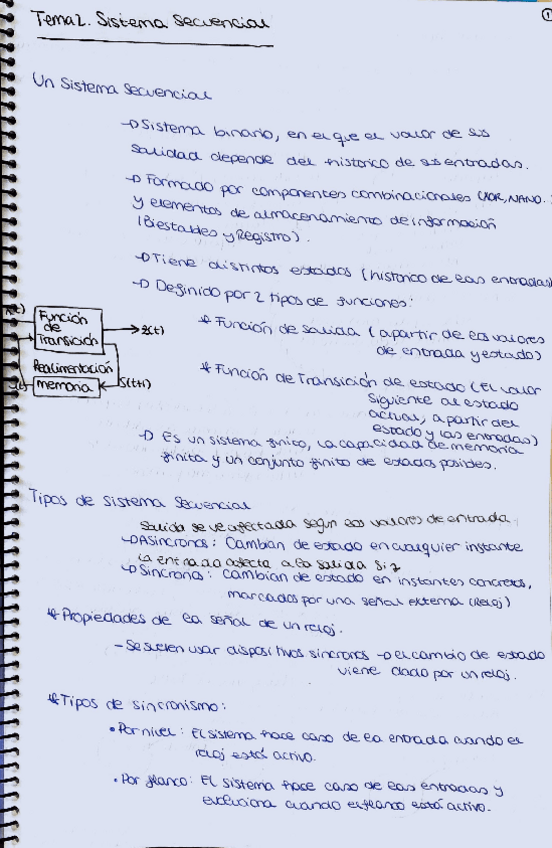 1
Tema 2. Sistema Secuencial
Un Sistema Secuencial
→ Sistema binario, en el que el valor de sus
salidad depende del historico de sus entradas.
→ Formado por componentes combinacionales (XOR, NAND..
y elementos de almacenamiento de información
(Biestables y Registro).
→ Tiene distintos estados (historico de las entradas)
→ Definido por 2 tipos de funciones:
* Función de salida (a partir de los valores
de entrada y estado)
* Función de Transición de estado (el valor
siguiente al estado
actual, a partir del
estado y las entradas)
x(t)
Función
de
Transición
z(t)
Realimentación
memoria
S(t+1)
→ Es un sistema finito, la capacidad de memoria
finita y un conjunto finito de estados posibles.
Tipos de sistema Secuencial
Salida se ve afectada segun los valores de entrada
→ Asincronos: Cambian de estado en cualquier instante
la entrada afecta a la salida si
→ Sincronos: cambian de estado en instantes concretos,
marcados por una señal externa (reloj)
* Propiedades de la señal de un reloj.
- Se suelen usar dispositivos sincronos → el cambio de estado
viene dado por un reloj.
* Tipos de sincronismo:
• Por nivel: El sistema hace caso de la entrada cuando el
reloj está activo.
• Por flanco: El sistema hace caso de las entradas y
evoluciona cuando el flanco está activo.